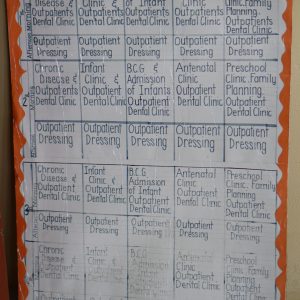 Disease & Outpatients Dental Clinic
Clinic & Outpatients Dental Clinic
of Infant Clinic Outpatients Dental Clinic
Clinic & Outpatients Dental Clinic
Clinic, Family Planning, Outpatients Dental Clinic
Outpatient Dressing
Outpatient Dressing
Outpatient Dressing
Outpatient Dressing
Outpatient Dressing
2
Chronic Disease & Outpatients Dental Clinic
Infant Clinic & Outpatient Dental Clinic
B.C.G & Admission of Infants Dental Clinic
Antenatal Clinic Outpatient Dental Clinic
Preschool Clinic, Family Planning, Outpatient Dental Clinic
Outpatient Dressing
Outpatient Dressing
Outpatient Dressing
Outpatient Dressing
Outpatient Dressing
3
Chronic Disease & Outpatient Dental Clinic
Infant Clinic & Outpatient Dental Clinic
B.C.G Admission of Infant Outpatient Dental Clinic
Antenatal Clinic & Outpatient Dental Clinic
Preschool Clinic, Family Planning & Outpatient Dental Clinic
Outpatient Dressing
Outpatient Dressing
Outpatient Dressing
Outpatient Dressing
Outpatient Dressing
Chronic Disease & Outpatient Dental Clinic
Infant Clinic & Outpatient Dental Clinic
B.C.G Admission
Antenatal Clinic & Outpatient Dental Clinic
Preschool Clinic, Family Planning & Outpatient Dental Clinic